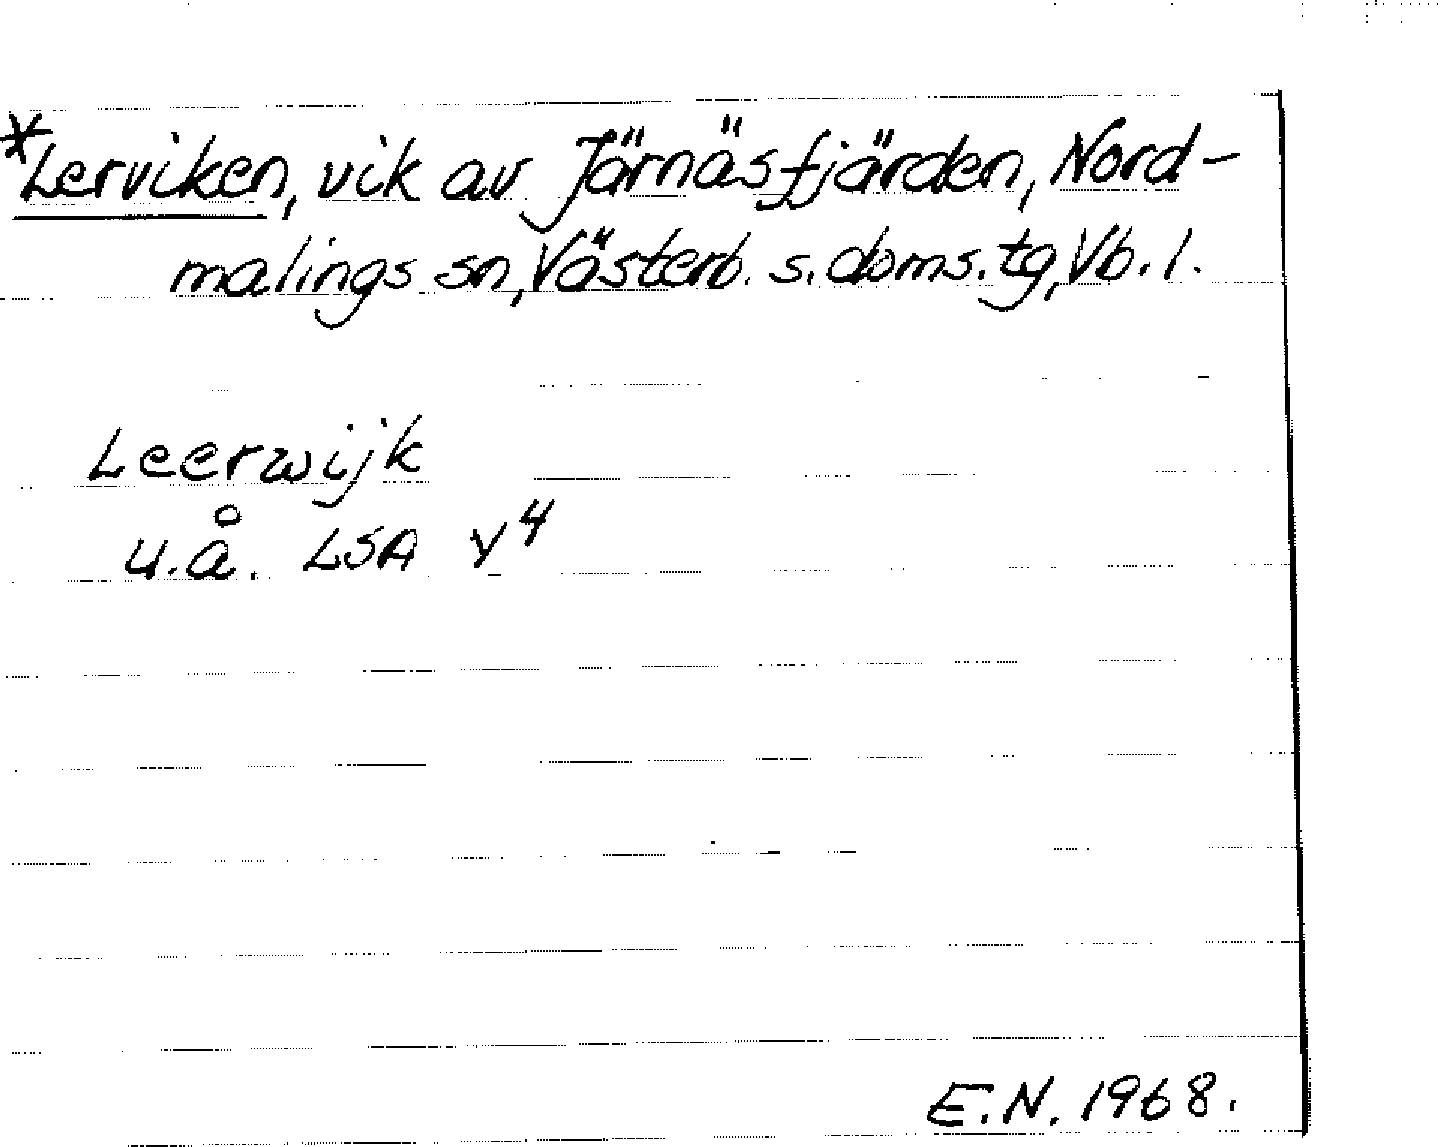 *Lerviken, vik av Järnäsfjärden, Nord-
malings sn, Västerb. s. doms. tg, Vb. l.
Leerwijk
u.å. LSA V⁴
E.N. 1968.